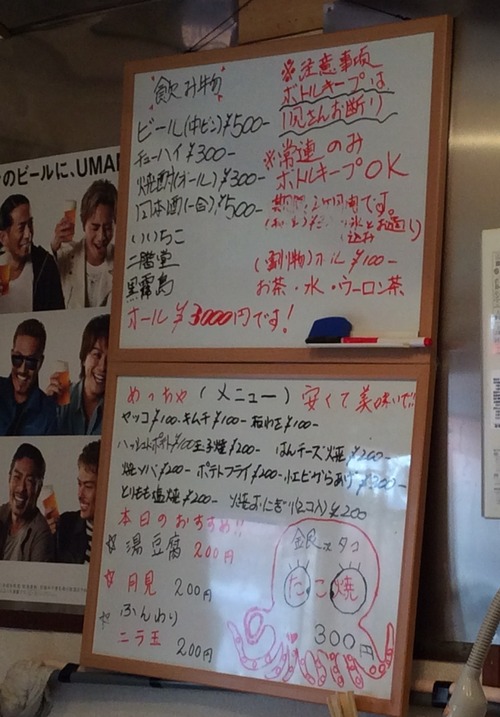 のビールに、UMA
飲み物
ビール(中ビン)¥500-
チューハイ ¥300-
焼酎(オール)¥300-
日本酒(一合)¥500-
いいちこ
二階堂
黒霧島
オール ¥3000円です!
※注意事項
ボトルキープは
一見さんお断り
※常連のみ
ボトルキープOK
です。
氷とお通り
込み
(割物)オール ¥100-
お茶・水・ウーロン茶
めっちゃ(メニュー)安くて美味いで!!
ヤッコ¥100- キムチ¥100- 枝わさ¥100-
ハッシュポテト¥100 玉子焼¥200- はんチーズ焼¥200-
焼ソバ¥200- ポテトフライ¥200- 小エビからあげ¥200-
とりもも塩焼¥200- 焼おにぎり(2コ入)¥200
本日のおすすめ!!
☆湯豆腐 200円
☆月見 200円
☆ふんわり
ニラ玉 200円
銀ダコ
たこ焼
300円